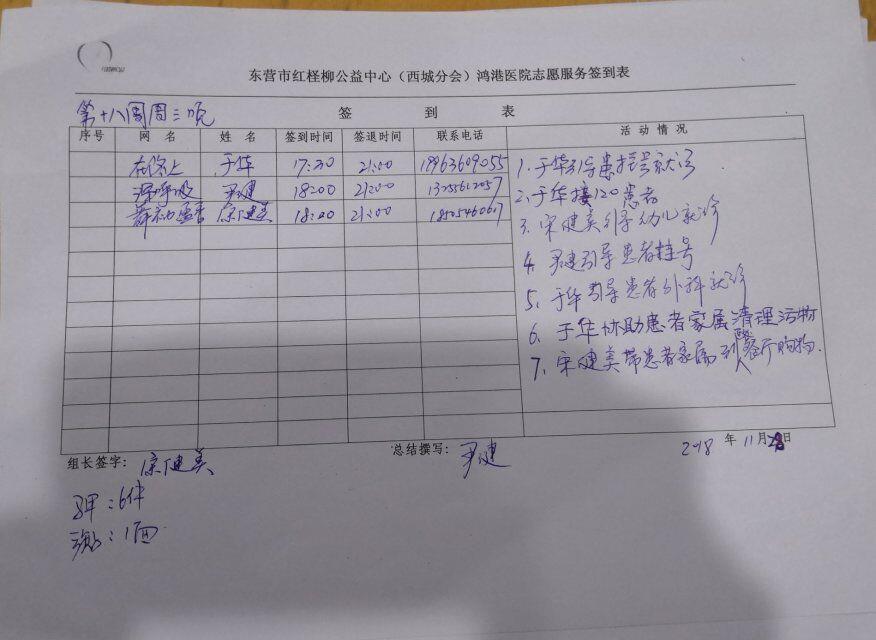 东营市红柽柳公益中心（西城分会）鸿港医院志愿服务签到表
第十八周周三晚
签 到 表
序号 网 名 姓 名 签到时间 签退时间 联系电话 活 动 情 况
在路上 于华 17:30 21:00 18963609055
深呼吸 尹健 18:00 21:00
宋健美 18:00 21:00
1. 于华引导患挂号就诊
2. 于华接120患者
3. 宋健美引导幼儿就诊
4. 尹健引导患者挂号
5. 于华引导患者外科就诊
6. 于华协助患者家属清理污物
7. 宋健美带患者家属到餐厅购物.
组长签字：宋健美
总结撰写：尹健
2018 年 11月28日
马甲：6件
：1面